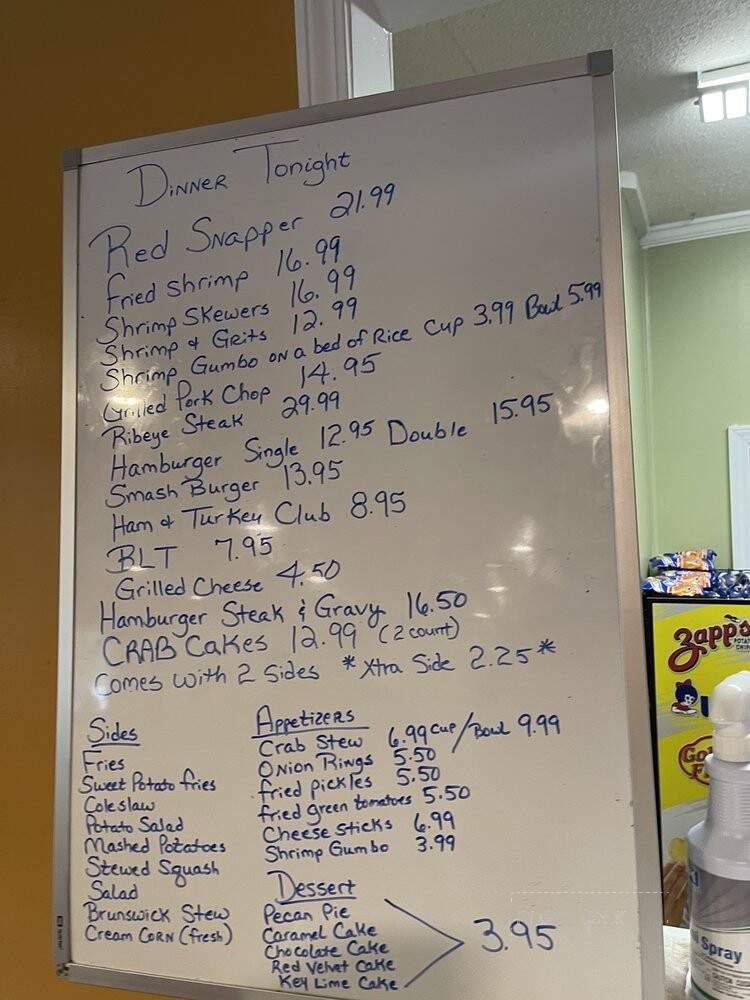 Dinner Tonight
Red Snapper 21.99
Fried Shrimp 16.99
Shrimp Skewers 16.99
Shrimp & Grits 12.99
Shrimp Gumbo on a bed of Rice Cup 3.99 Bowl 5.99
Grilled Pork Chop 14.95
Ribeye Steak 29.99
Hamburger Single 12.95 Double 15.95
Smash Burger 13.95
Ham & Turkey Club 8.95
BLT 7.95
Grilled Cheese 4.50
Hamburger Steak & Gravy 16.50
CRAB Cakes 12.99 (2 count)
Comes with 2 Sides *Xtra Side 2.25*
Sides
Fries
Sweet Potato fries
Coleslaw
Potato Salad
Mashed Potatoes
Stewed Squash
Salad
Brunswick Stew
Cream Corn (fresh)
Appetizers
Crab Stew 6.99 cup/Bowl 9.99
Onion Rings 5.50
fried pickles 5.50
fried green tomatoes 5.50
Cheese sticks 6.99
Shrimp Gumbo 3.99
Dessert
Pecan Pie
Caramel Cake
Chocolate Cake
Red Velvet Cake
Key Lime Cake
3.95
Zapp's
POTATO
CHIPS
Spray